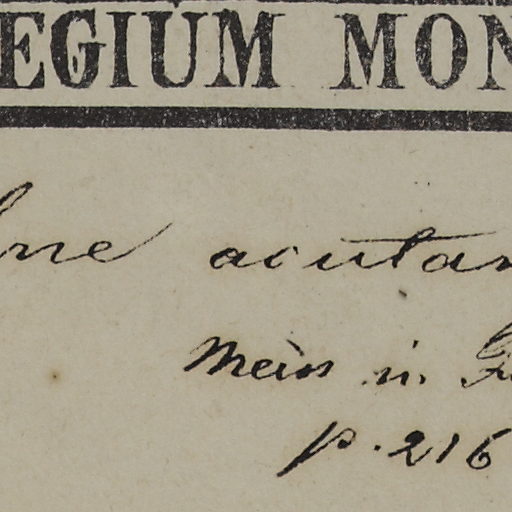 EGIUM MON
ne acutan
Mein in
p. 216